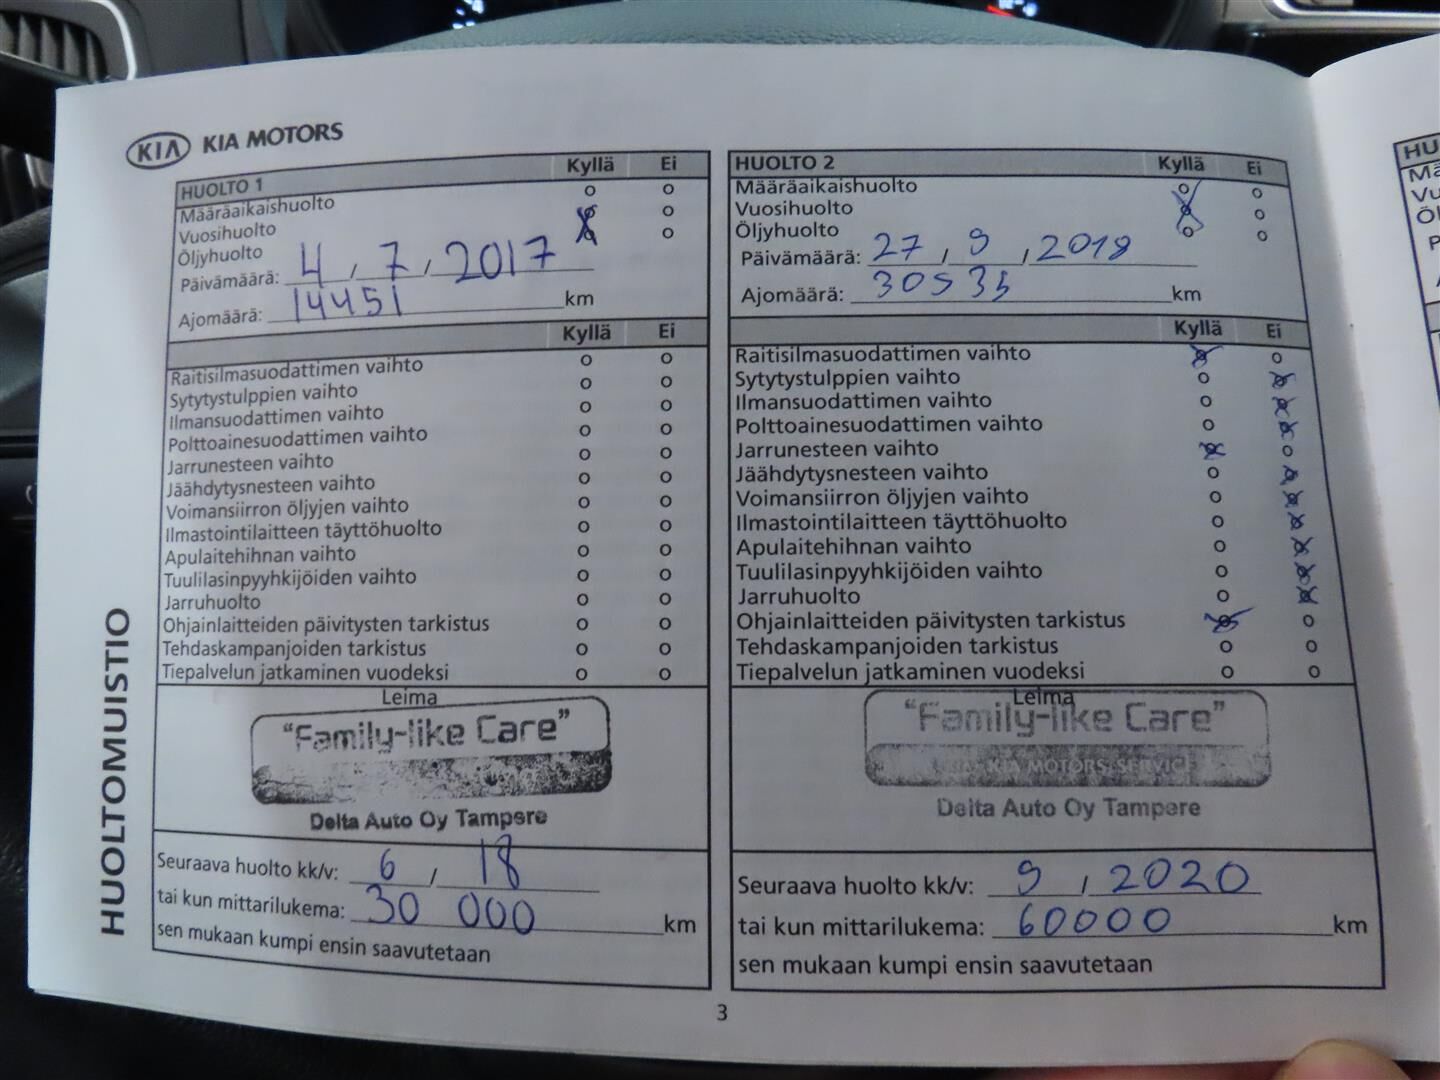 KIA KIA MOTORS
HUOLTOMUISTIO
HUOLTO 1 Kyllä Ei
Määräaikaishuolto o o
Vuosihuolto o o
Öljyhuolto o o
Päivämäärä: 4 / 7 / 2017
Ajomäärä: 14451 km
Kyllä Ei
Raitisilmasuodattimen vaihto o o
Sytytystulppien vaihto o o
Ilmansuodattimen vaihto o o
Polttoainesuodattimen vaihto o o
Jarrunesteen vaihto o o
Jäähdytysnesteen vaihto o o
Voimansiirron öljyjen vaihto o o
Ilmastointilaitteen täyttöhuolto o o
Apulaitehihnan vaihto o o
Tuulilasinpyyhkijöiden vaihto o o
Jarruhuolto o o
Ohjainlaitteiden päivitysten tarkistus o o
Tehdaskampanjoiden tarkistus o o
Tiepalvelun jatkaminen vuodeksi o o
Leima
"Family-like Care"
Delta Auto Oy Tampere
Seuraava huolto kk/v: 6 / 18
tai kun mittarilukema: 30 000 km
sen mukaan kumpi ensin saavutetaan
HUOLTO 2 Kyllä Ei
Määräaikaishuolto o o
Vuosihuolto o o
Öljyhuolto o o
Päivämäärä: 27 / 9 / 2018
Ajomäärä: 30535 km
Kyllä Ei
Raitisilmasuodattimen vaihto o o
Sytytystulppien vaihto o o
Ilmansuodattimen vaihto o o
Polttoainesuodattimen vaihto o o
Jarrunesteen vaihto o o
Jäähdytysnesteen vaihto o o
Voimansiirron öljyjen vaihto o o
Ilmastointilaitteen täyttöhuolto o o
Apulaitehihnan vaihto o o
Tuulilasinpyyhkijöiden vaihto o o
Jarruhuolto o o
Ohjainlaitteiden päivitysten tarkistus o o
Tehdaskampanjoiden tarkistus o o
Tiepalvelun jatkaminen vuodeksi o o
Leima
"Family-like Care"
KIA MOTORS SERVICE
Delta Auto Oy Tampere
Seuraava huolto kk/v: 9 / 2020
tai kun mittarilukema: 60000 km
sen mukaan kumpi ensin saavutetaan
3